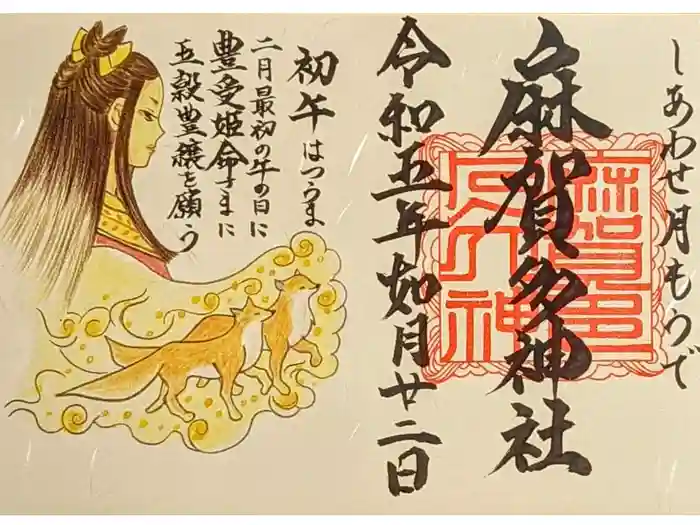 しあわせ月もうで
麻賀多神社
令和五年如月廿二日
初午 はつうま
二月最初の午の日に
豊受姫命さまに
五穀豊穣を願う